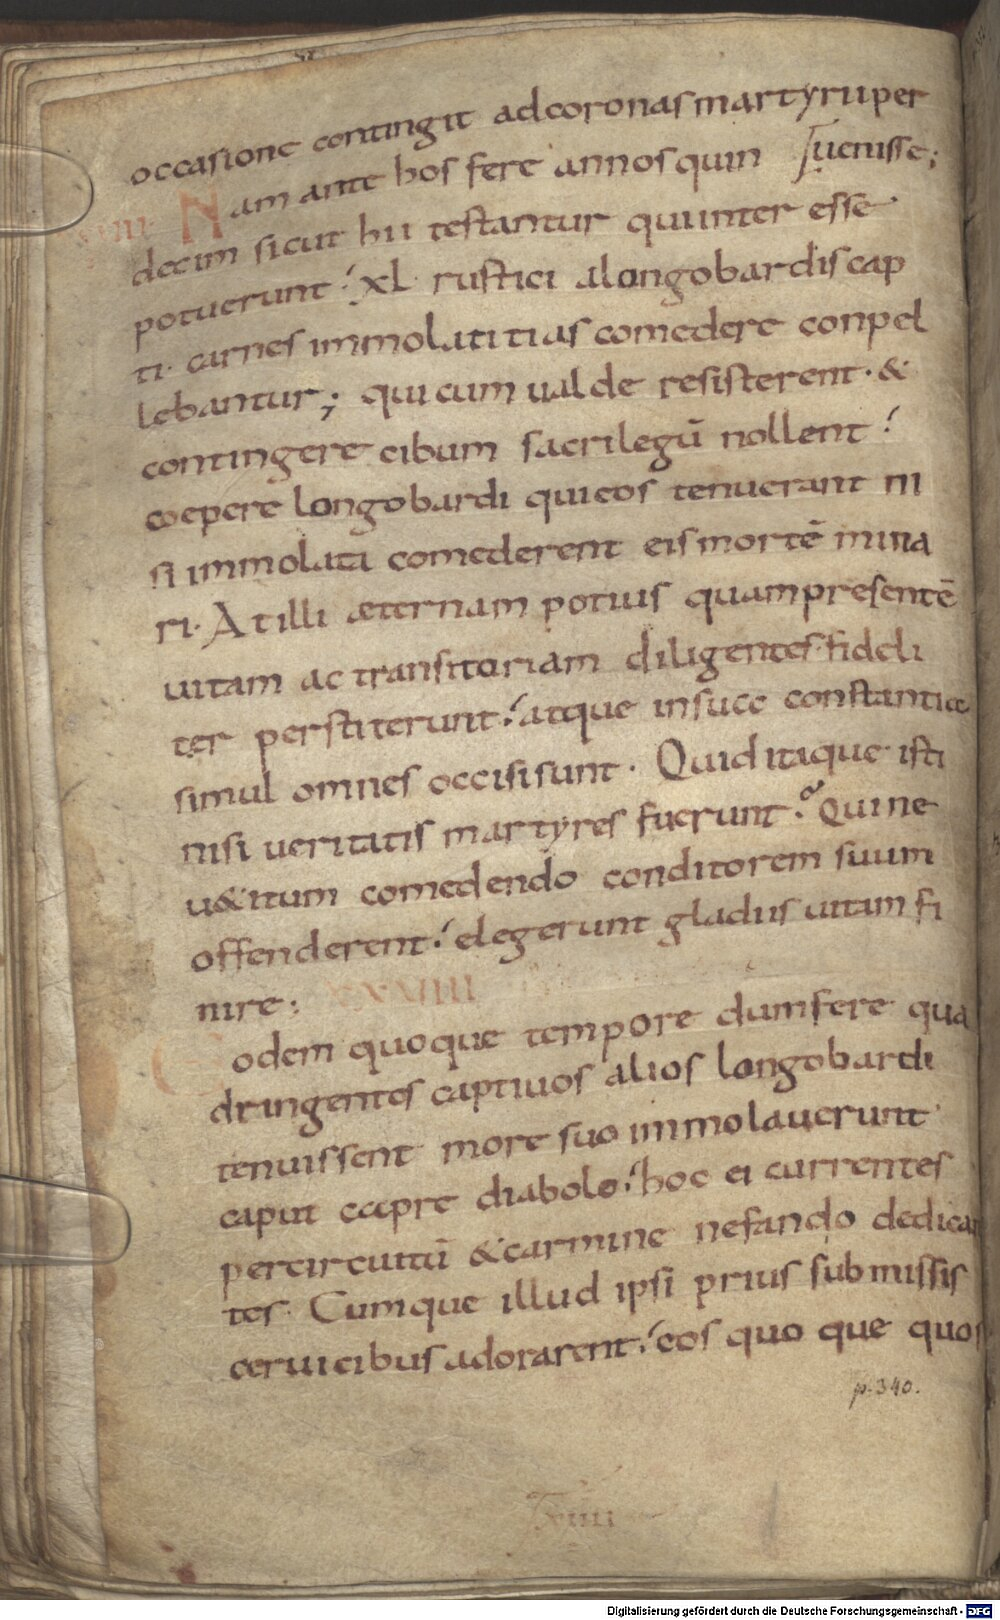 occasione contingit ad coronas martyrū per
uenisse;
XXVIII. Nam ante hos fere annos quin
decim sicut hii testantur qui inter esse
potuerunt. XL. rustici a longobardis cap
ti. carnes immolatitias comedere conpel
lebantur; qui cum ualde resisterent. &
contingere cibum sacrilegū nollent.
coepere longobardi qui eos tenuerant ni
si immolata comederent eis mortē mina
ri. At illi æternam potius quam presentē
uitam ac transitoriam diligentes fideli
ter perstiterunt. atque in suæ constantiæ
simul omnes occisi sunt. Quid itaque isti
nisi ueritatis martyres fuerunt? Qui ne
u&itum comedendo conditorem suum
offenderent. elegerunt gladiis uitam fi
nire:
XXVIIII
Eodem quoque tempore dum fere qua
dringentos captiuos alios longobardi
tenuissent more suo immolauerunt
caput capre diabolo. hoc ei currentes
per circuitū & carmine nefando dedican
tes. Cumque illud ipsi prius submissis
ceruicibus adorarent. eos quo que quos
p. 340.
XIIII
Digitalisierung gefördert durch die Deutsche Forschungsgemeinschaft - DFG